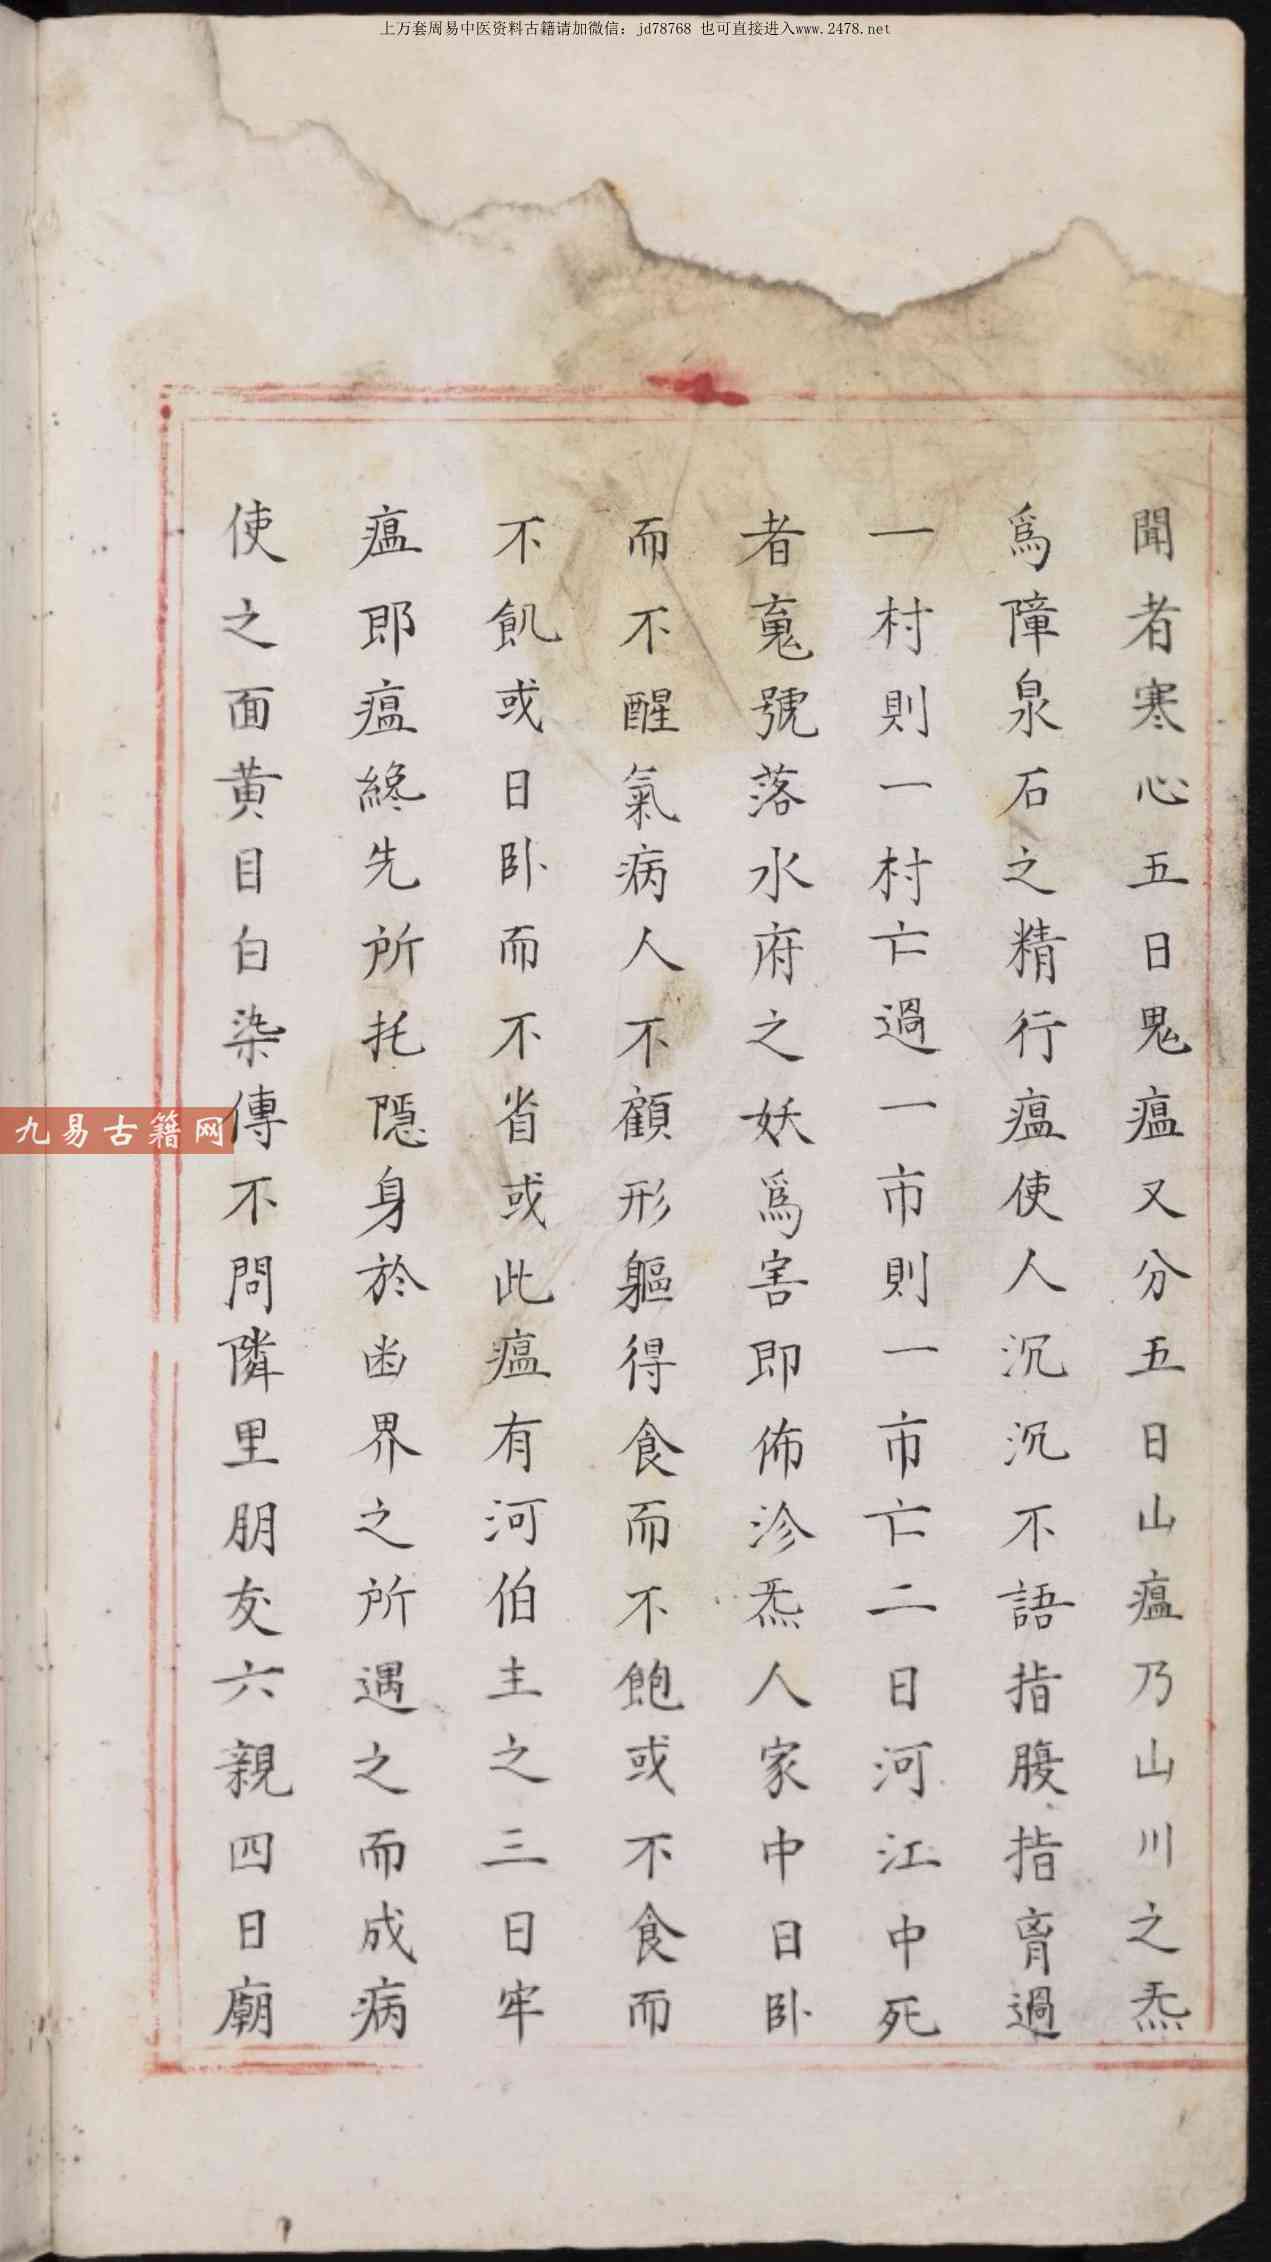 上万套周易中医资料古籍请加微信：jd78768 也可直接进入www.2478.net
聞者寒心五日鬼瘟又分五日山瘟乃山川之炁
爲障泉石之精行瘟使人沉沉不語指腹指育過
一村則一村亡過一市則一市亡二日河江中死
者䰟號落水府之妖爲害即佈沴炁人家中日卧
而不醒氣病人不顧形軀得食而不飽或不食而
不飢或日卧而不省或此瘟有河伯主之三日牢
瘟即瘟終先所托隱身於凼界之所遇之而成病
使之面黄目白染傳不問隣里朋友六親四日廟
九易古籍网